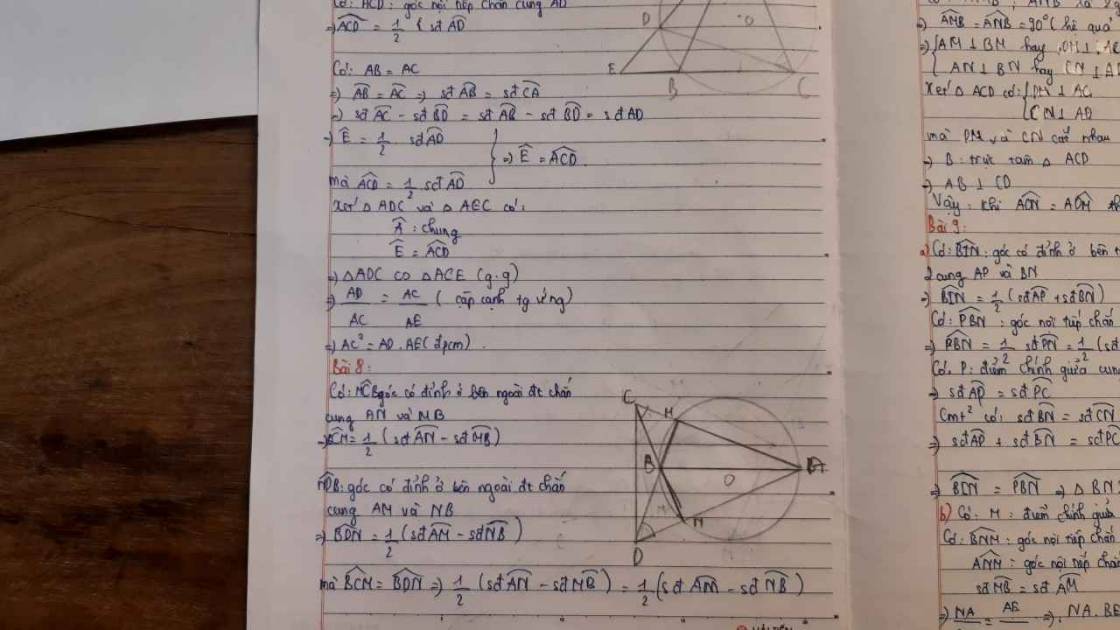 Có: ACD: góc nội tiếp chắn cung AD
⇒ ACD = 1/2 sđ AD
Có: AB = AC
⇒ AB = AC ⇒ sđ AB = sđ CA
⇒ sđ AC - sđ BD = sđ AB - sđ BD = sđ AD
⇒ E = 1/2 sđ AD
⇒ E = ACD
mà ACD = 1/2 sđ AD
Xét Δ ADC và Δ AEC có:
A : chung
E = ACD
⇒ Δ ADC ∽ Δ ACE (g.g)
⇒ AD/AC = AC/AE ( cặp cạnh tg ứng)
⇒ AC² = AD . AE (đpcm).
Bài 8:
Có: góc có đỉnh ở bên ngoài đt chắn
cung AN và MB
⇒ BCM = 1/2 (sđ AN - sđ MB)
góc có đỉnh ở bên ngoài đt chắn
cung AM và NB
⇒ BDN = 1/2 (sđ AM - sđ NB)
mà BCM = BDN ⇒ 1/2 (sđ AN - sđ MB) = 1/2 (sđ AM - sđ NB)
D O
E B C
C M
B O A
D
⇒ AMB = ANB = 90° ( hệ quả
⇒ AM ⊥ BM hay
AN ⊥ BN hay CN ⊥ A
Xét Δ ACD có: DM ⊥ AC
CN ⊥ AD
mà DM và CN cắt nhau
⇒ B: trực tâm Δ ACD
⇒ AB ⊥ CD
Vậy: Khi ACN = ADM th
Bài 9:
a) Có: BIN: góc có đỉnh ở bên t
2 cung AP và BN
⇒ BIN = 1/2 (sđ AP + sđ BN)
Có: PBN: góc nội tiếp chắn
⇒ PBN = 1/2 sđ PN = 1/2 (sđ
Có: P: điểm chính giữa cung
⇒ sđ AP = sđ PC
Cmt² có: sđ BN = sđ CN
⇒ sđ AP + sđ BN = sđ PC
⇒ BIN = PBN ⇒ Δ BN
b) Có: M: điểm chính giữa
Có: BNM: góc nội tiếp chắn
ANM: góc nội tiếp chắ
sđ MB = sđ AM
⇒ NA = AE ⇒ NA. BE